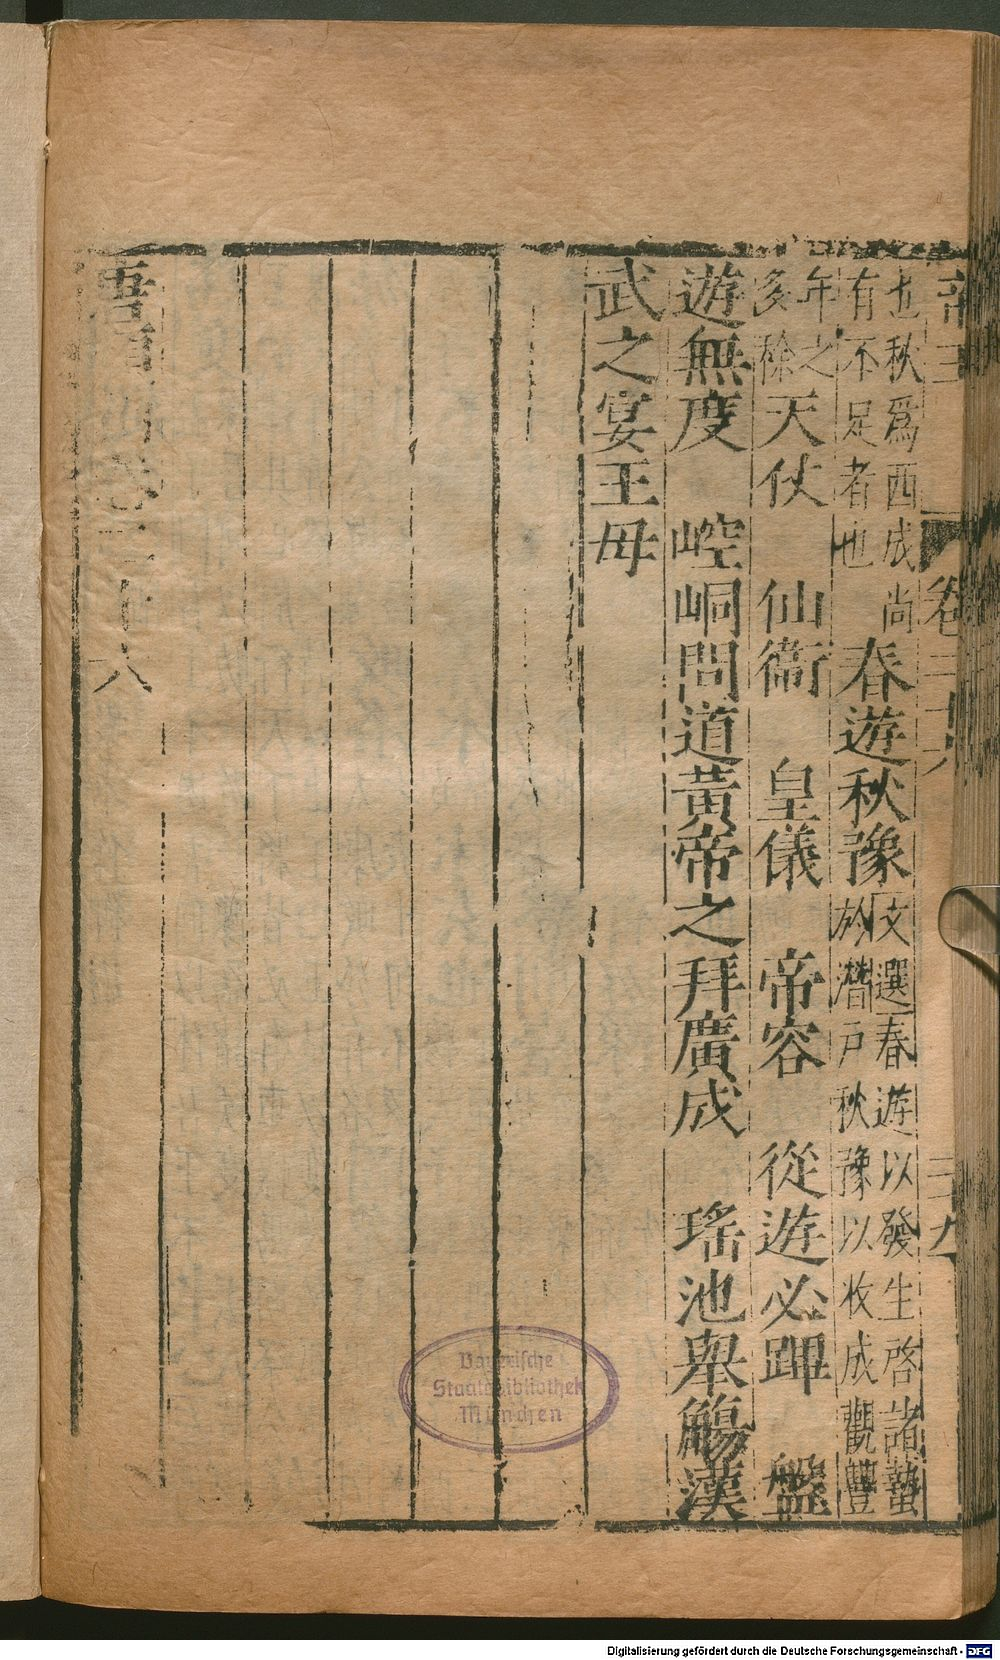 也秋爲西成尚
有不足者也
春遊秋豫
文選春遊以發生啓諸蟄
於潛戶秋豫以收成觀豐
年之
多稌
天仗　仙衞　皇儀　帝容　從遊必蹕　盤
遊無度　崆峒問道黃帝之拜廣成　瑤池舉觴漢
武之宴王母
卷三十六
三九
卷三十六
Bayerische
Staatsbibliothek
München
Digitalisierung gefördert durch die Deutsche Forschungsgemeinschaft - DFG